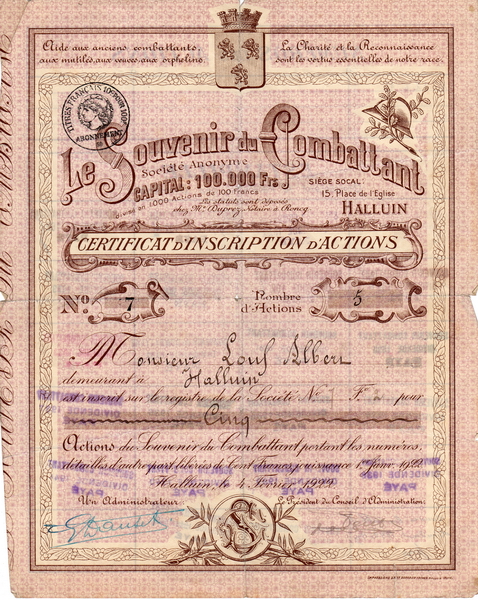 Aide aux anciens combattants,
aux mutilés, aux veuves, aux orphelins.
La Charité et la Reconnaissance
sont les vertus essentielles de notre race.
TITRES FRANÇAIS
ABONNEMENT
Le Souvenir du Combattant
Société Anonyme
CAPITAL: 100.000 Frs
divisé en 1000 Actions de 100 francs
Les statuts sont déposés
chez Me Duprez Notaire à Roncq
SIÈGE SOCIAL:
15, Place de l'Eglise
HALLUIN
CERTIFICAT D'INSCRIPTION D'ACTIONS
No 7
Nombre
d'Actions 5
Monsieur Albert
demeurant à Halluin
est inscrit sur le registre de la Société No Fo pour
Cinq
Actions du Souvenir du Combattant portant les numéros
détaillés d'autre part libérées de Cent Francs, jouissance 1er Janv. 1922
Halluin le 4 Février 1922
Un Administrateur
Le Président du Conseil d'Administration:
PAYÉ